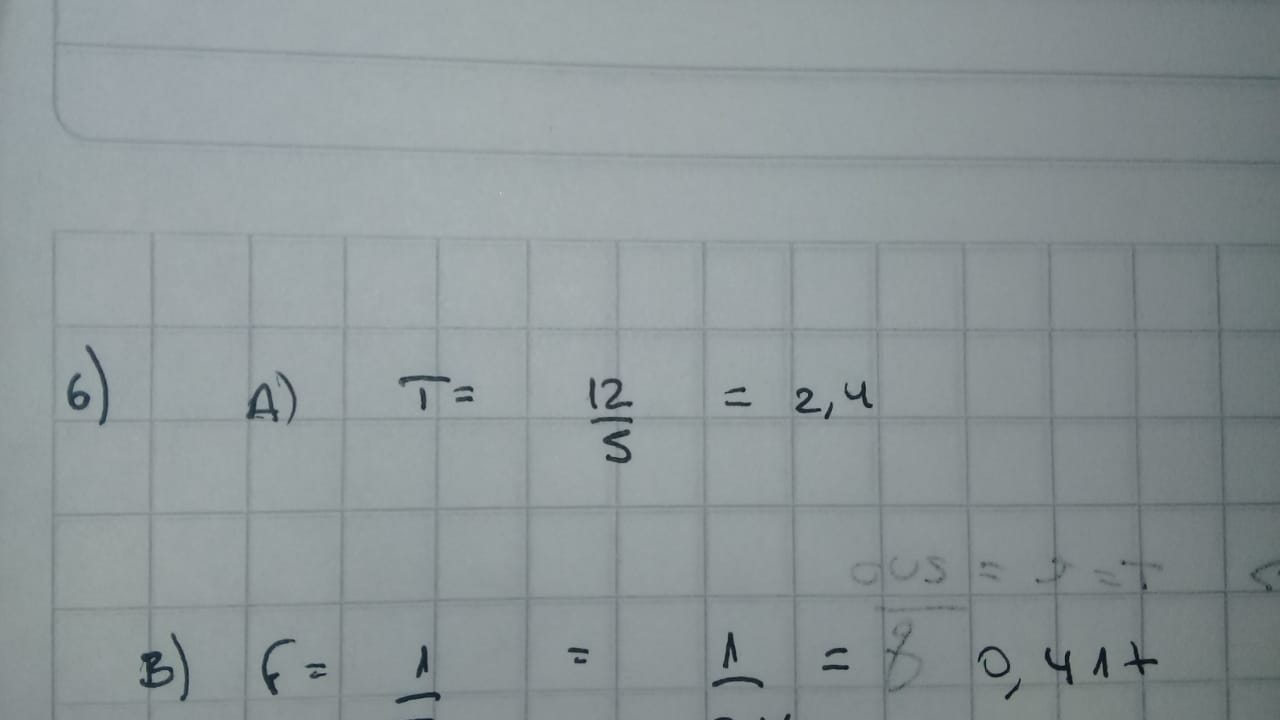 6) A) T = 12/5 = 2,4
B) F = 1/ = 1/ = 0,417